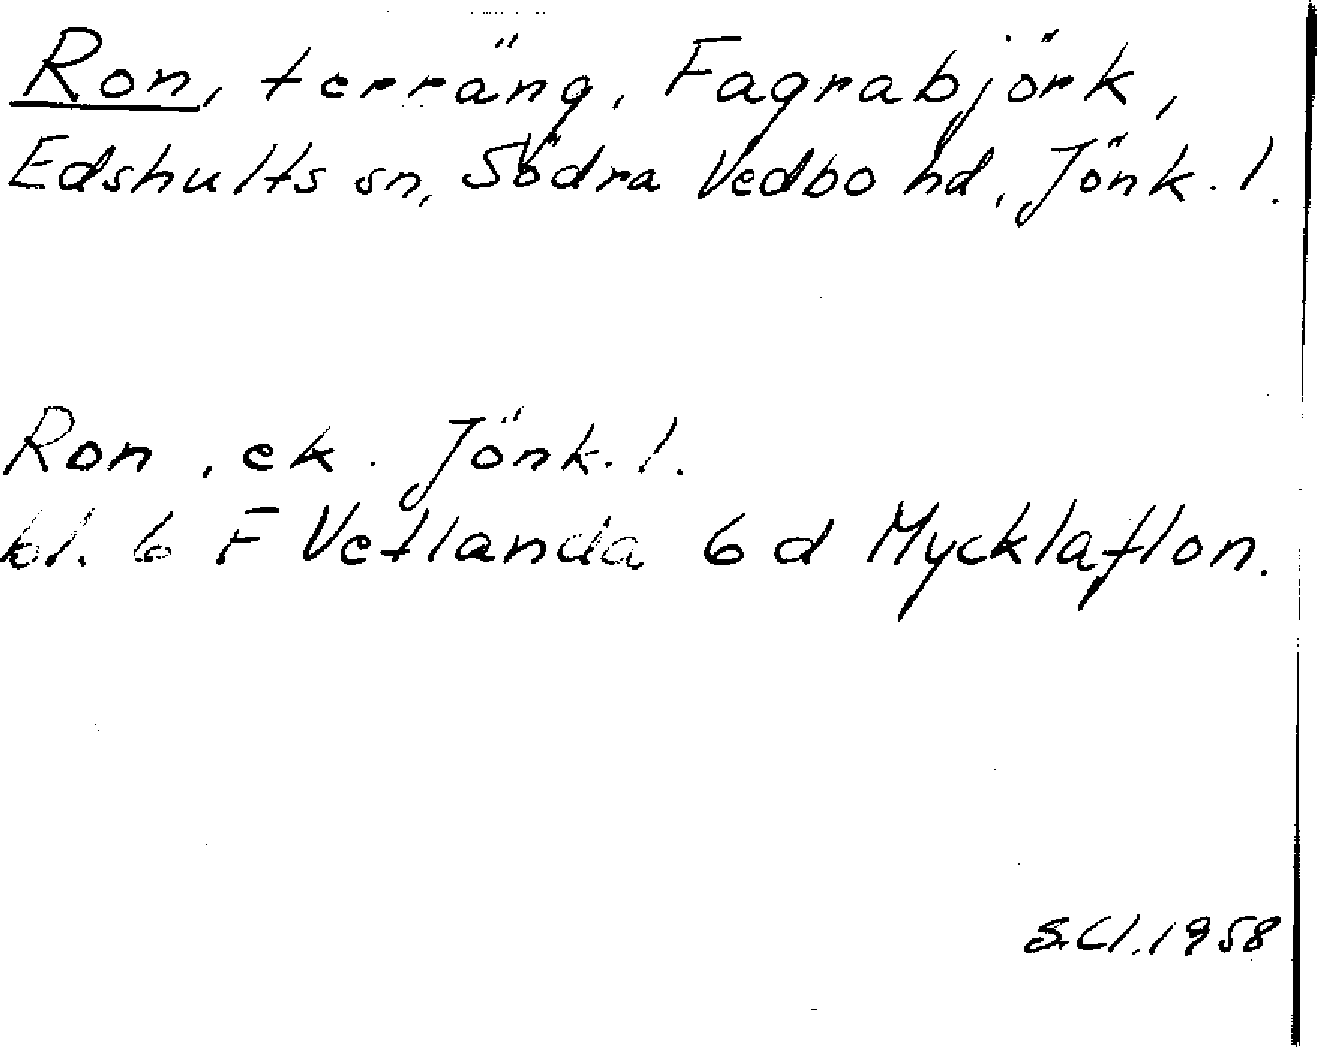 Ron, terräng, Fagrabjörk,
Edshults sn, Södra Vedbo hd, Jönk. l.
Ron, ek. Jönk. l.
bl. 6 F Vetlanda 6 d Mycklaflon.
S.Cl. 1958